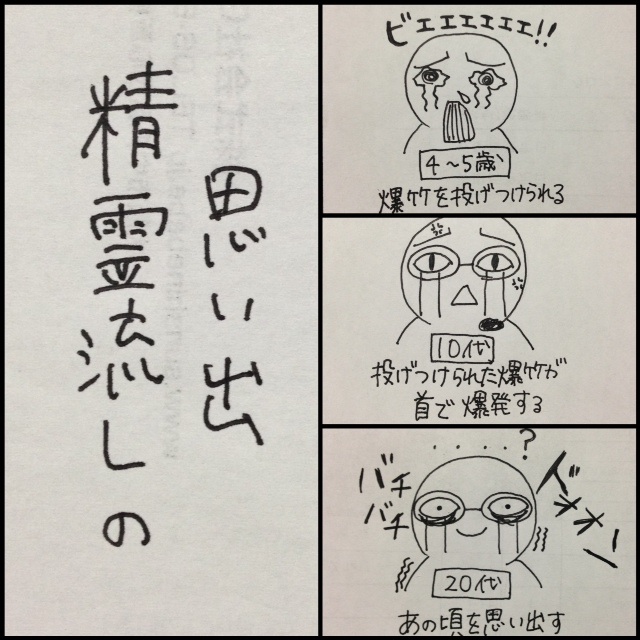 精霊流しの
思い出
ビエエエエエエ!!
4〜5歳
爆竹を投げつけられる
10代
投げつけられた爆竹が
首で爆発する
・・・・?
バチ
バチ
20代
あの頃を思い出す